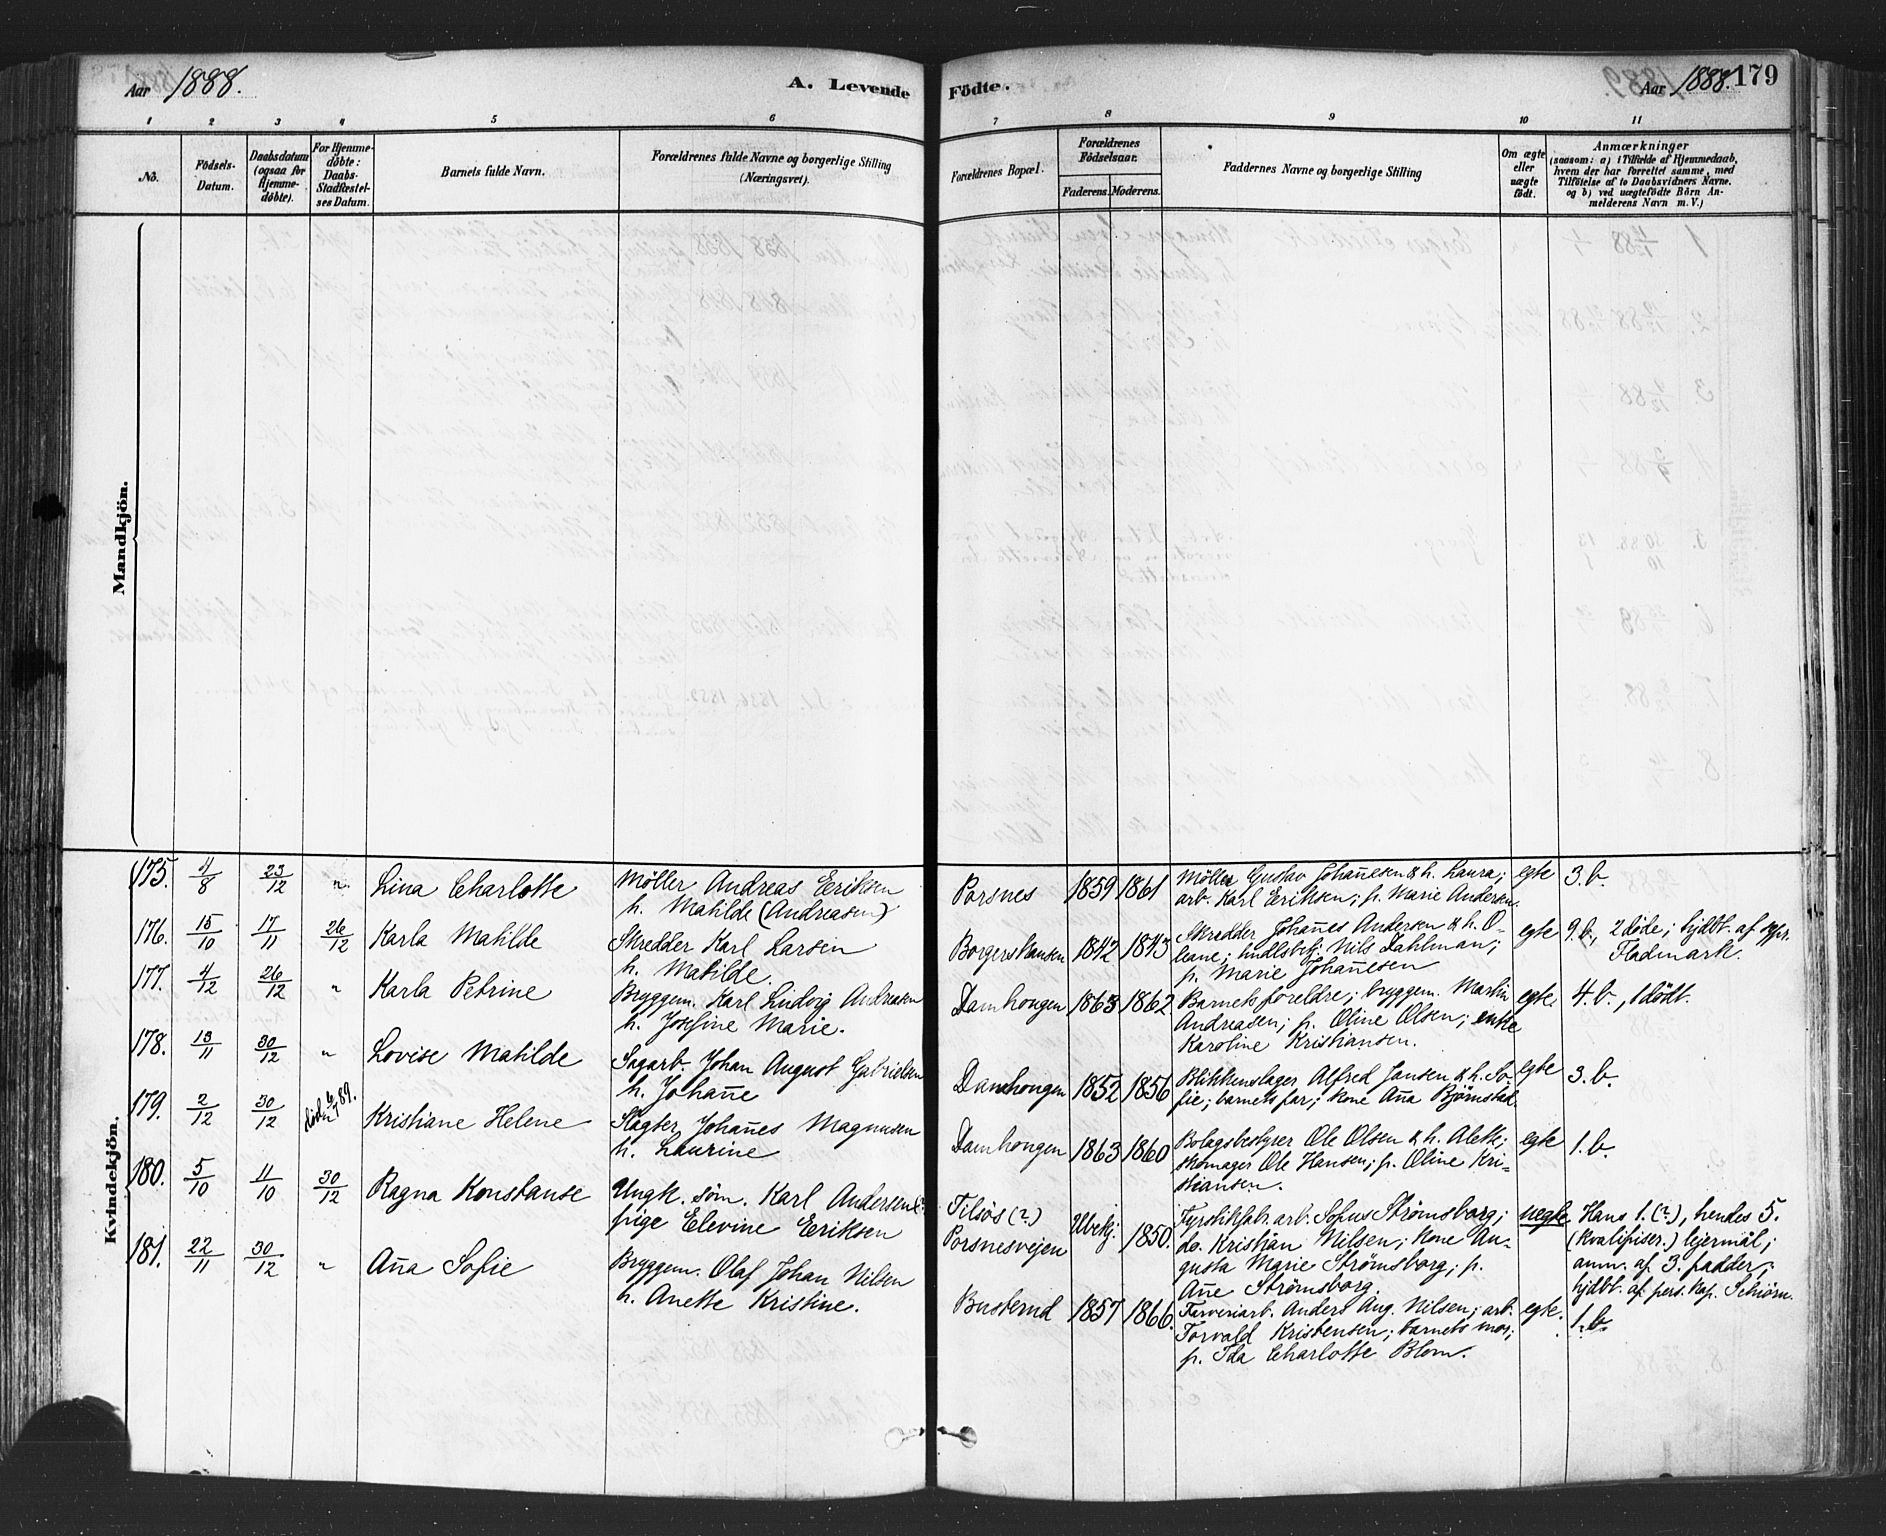 Aar 1888. A. Levende Födte. Aar 1888. 179
1 2 3 4 5 6 7 8 9 10 11
No. Födsels-Datum. Daabsdatum (ogsaa for Hjemme-döbte). For Hjemme-döbte: Daabs-Stadfæstel-ses Datum. Barnets fulde Navn. Forældrenes fulde Navne og borgerlige Stilling (Næringsvei). Forældrenes Bopæl. Forældrenes Födselsaar. Faderens. Moderens. Faddernes Navne og borgerlige Stilling Om ægte eller uægte födt. Anmærkninger
(saasom: a) i Tilfælde af Hjemmedaab,
hvem der har forrettet samme, med
Tilföielse af to Daabsvidners Navne,
og b) ved uægtefödte Börn An-
melderens Navn m. V.)
Mandkjön.
Kvindekjön.
175. 4/8 23/12 " Lina Charlotte Møller Andreas Eriksen
h. Matilde (Andreasen) Porsnes 1859 1861 Møller Gustav Johan̄esen & h. Laura;
arb. Karl Eriksen; p. Marie Andersen. egte 3. b.
176. 15/10 17/11 26/12 Karla Matilde Skredder Karl Larsen
h. Matilde. 1842 1843 Skredder Johan̄es Andersen & h. O-
leane; Nils Dahlman;
p. Marie Johan̄esen egte 9. b., 2 døde; hjdbt. af
Fladmark.
177. 4/12 26/12 " Karla Petrine Bryggem. Karl Ludvig Andreasen
h. Josefine Marie. Damhougen 1863 1862 Barnets foreldre; bryggem. Martin
Andreasen; p. Oline Olsen; enke
Karoline Kristiansen. egte 4. b., 1 dødt.
178. 13/11 30/12 " Lovise Matilde Sagarb. Johan August Gabrielsen
h. Johan̄e Damhougen 1852 1856 Blikkenslager Alfred Jansen & h. So-
fie; barnets far; kone An̄a Bjørnstad. egte 3. b.
179. 2/12 30/12 død 89. Kristiane Helene Slagter Johan̄es Magnusen
h. Laurine Damhougen 1863 1860 Bolagsbestyrer Ole Olsen & h. Alette;
skomager Ole Hansen; p. Oline Kri-
stiansen. egte 1. b.
180. 5/10 11/10 30/12 Ragna Konstanse Ungk. søm. Karl Andersen &
pige Elevine Eriksen Tilsøs (?)
Porsnesveien Ubekj. 1850. Fyrstikfabr. arb. Sofus Strømsborg;
do. Kristian Nilsen; kone Au-
gusta Marie Strømsborg; p.
An̄e Strømsborg. uegte Hans 1. (?), hendes 5.
(kvalifiser.) lejermål;
anm. af 3. fadder;
hjdbt. af pers. kap. Schiørn.
181. 22/11 30/12 " An̄a Sofie Bryggem. Olaf Johan Nilsen
h. Anette Kristine. Busterud 1857 1866. Farveriarb. Anders Aug. Nilsen; arb.
Torvald Kristensen; barnets mor;
p. Ida Charlotte Blom. egte. 1. b.